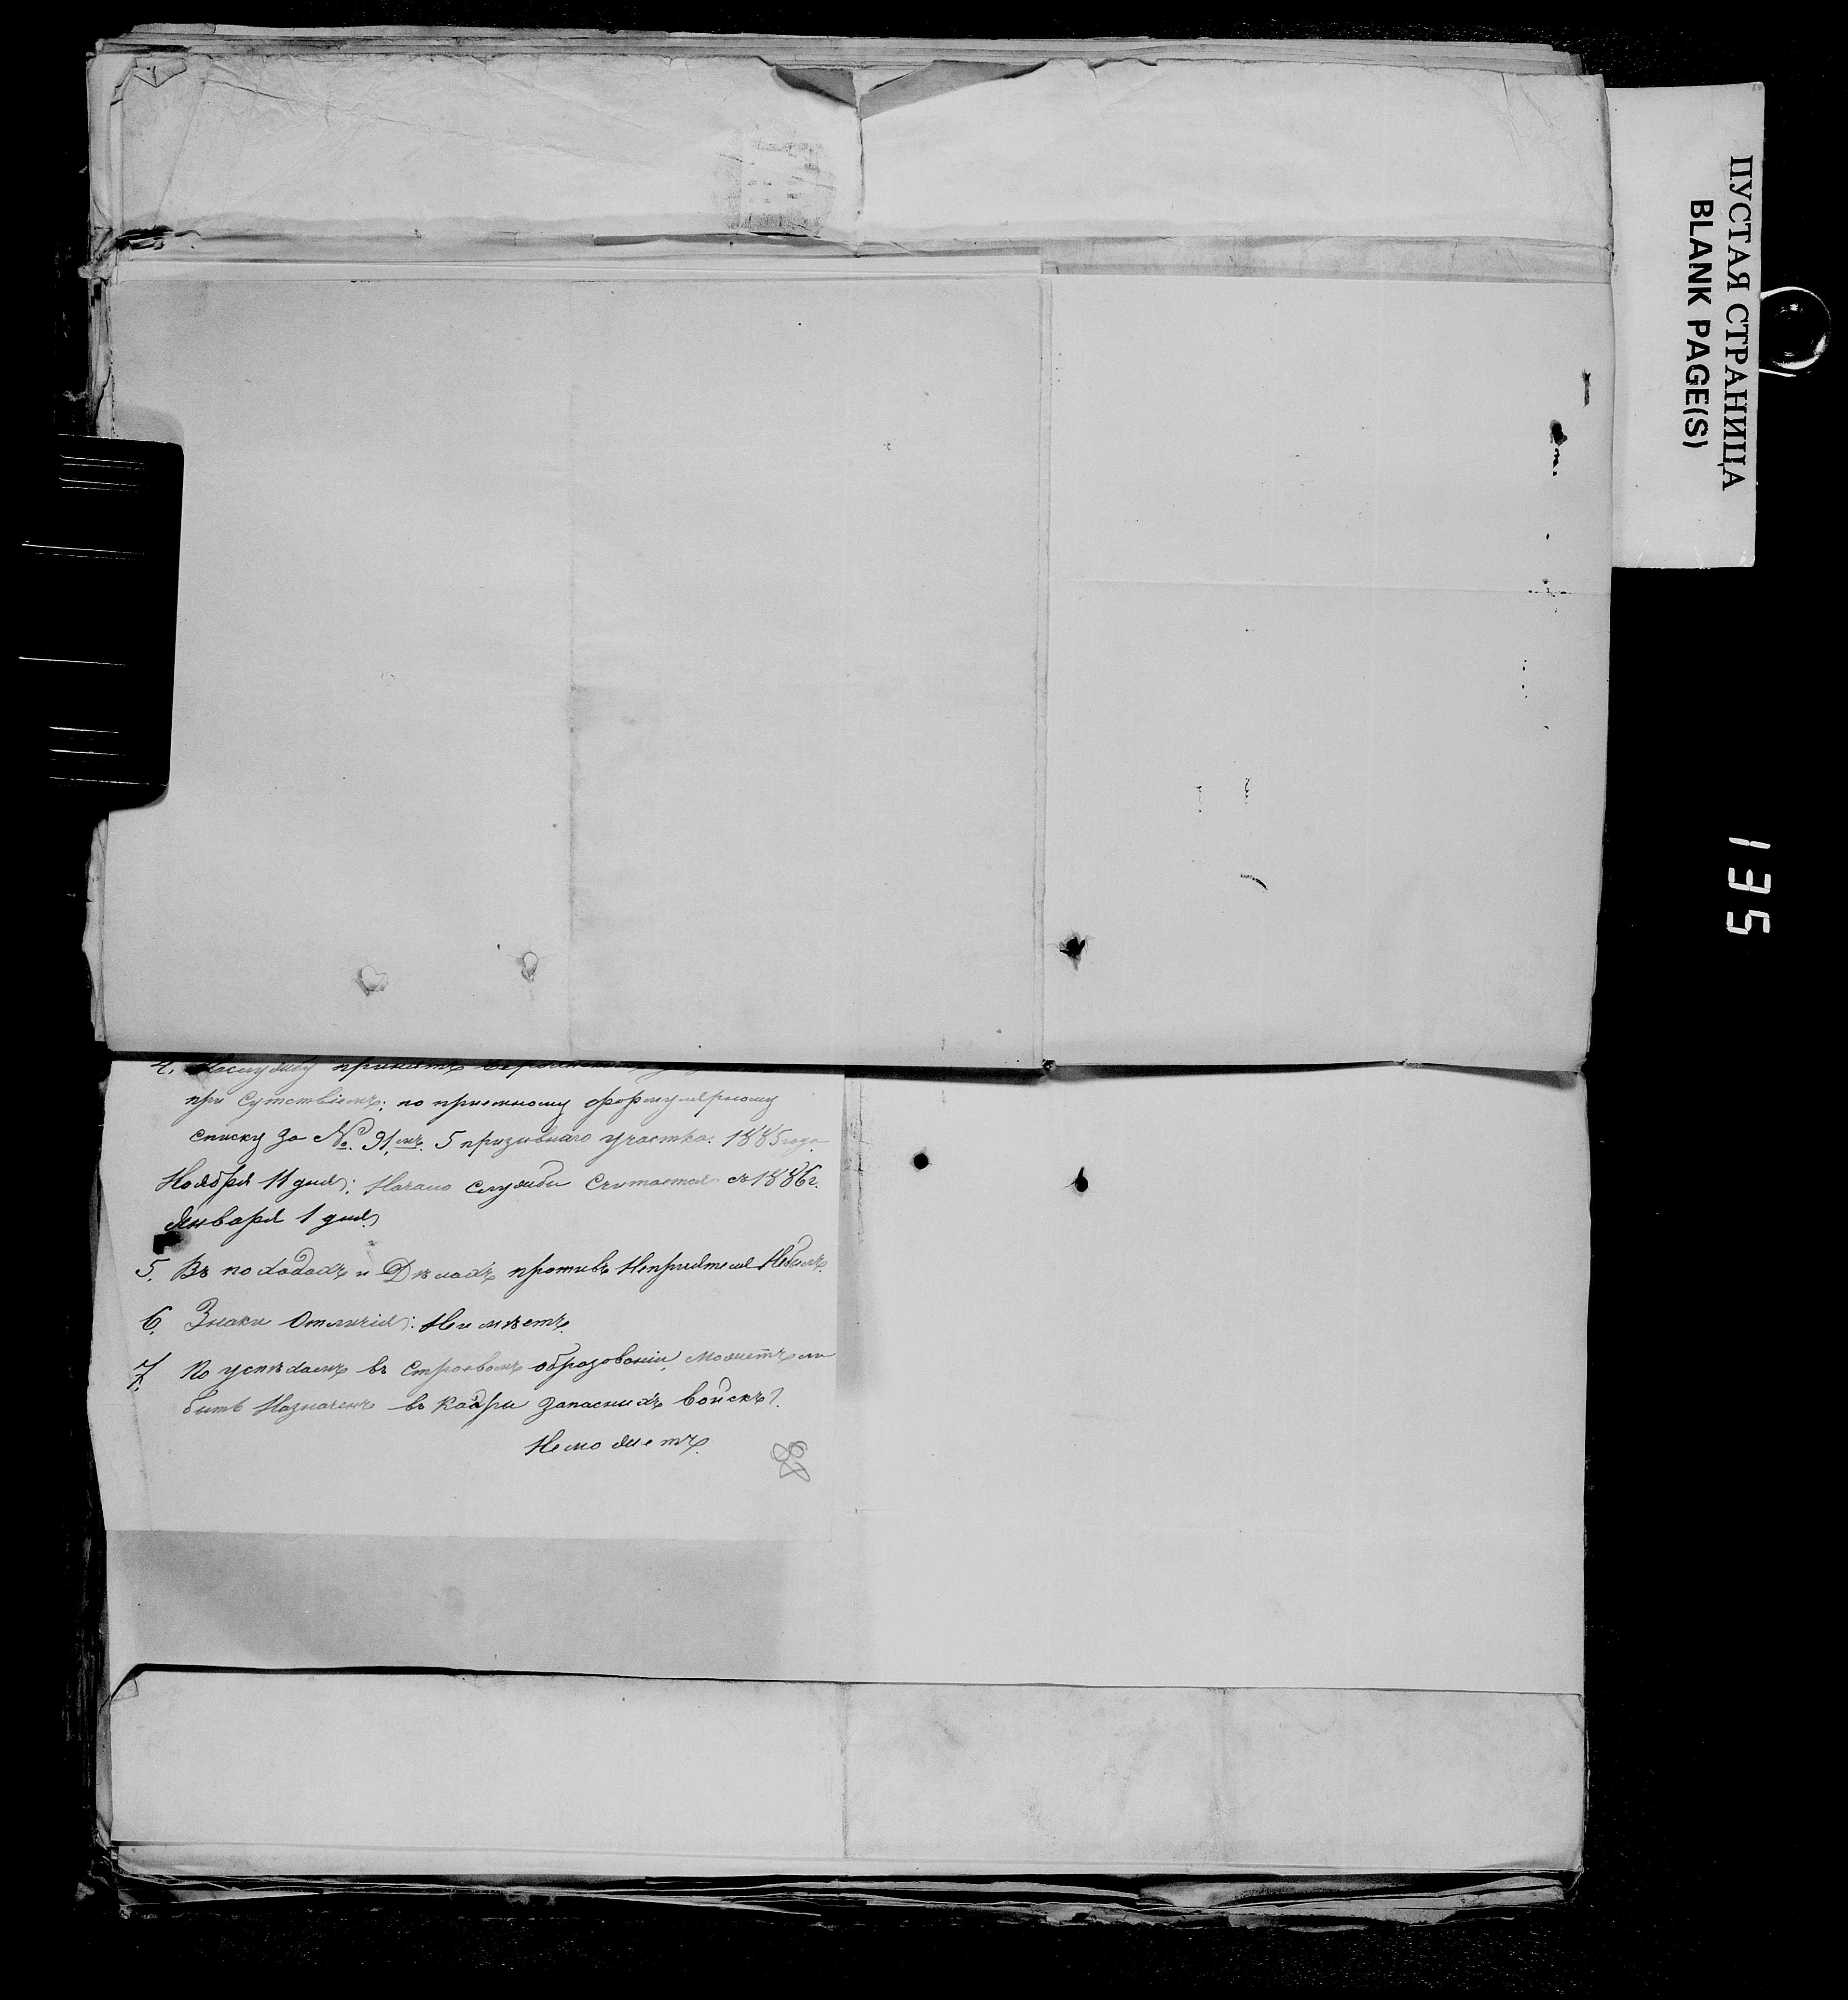 4. На службу принятъ
при сутствіемъ; по приемному формулярному
списку за № 91.мъ. 5 призывнаго участка. 1885 года
Ноября 11 дня; Начало службы Считается съ 1886 г.
Января 1 дня
5. Въ походахъ и Дѣлахъ противъ Непріятеля Небылъ.
6. Знаки Отличія: Неимѣетъ.
7. По успѣхамъ въ строевомъ образованіи, Можетъ ли
быть Назначенъ въ Кадры Запасныхъ Войскъ?
Неможетъ.
88
ПУСТАЯ СТРАНИЦА
BLANK PAGE(S)
135